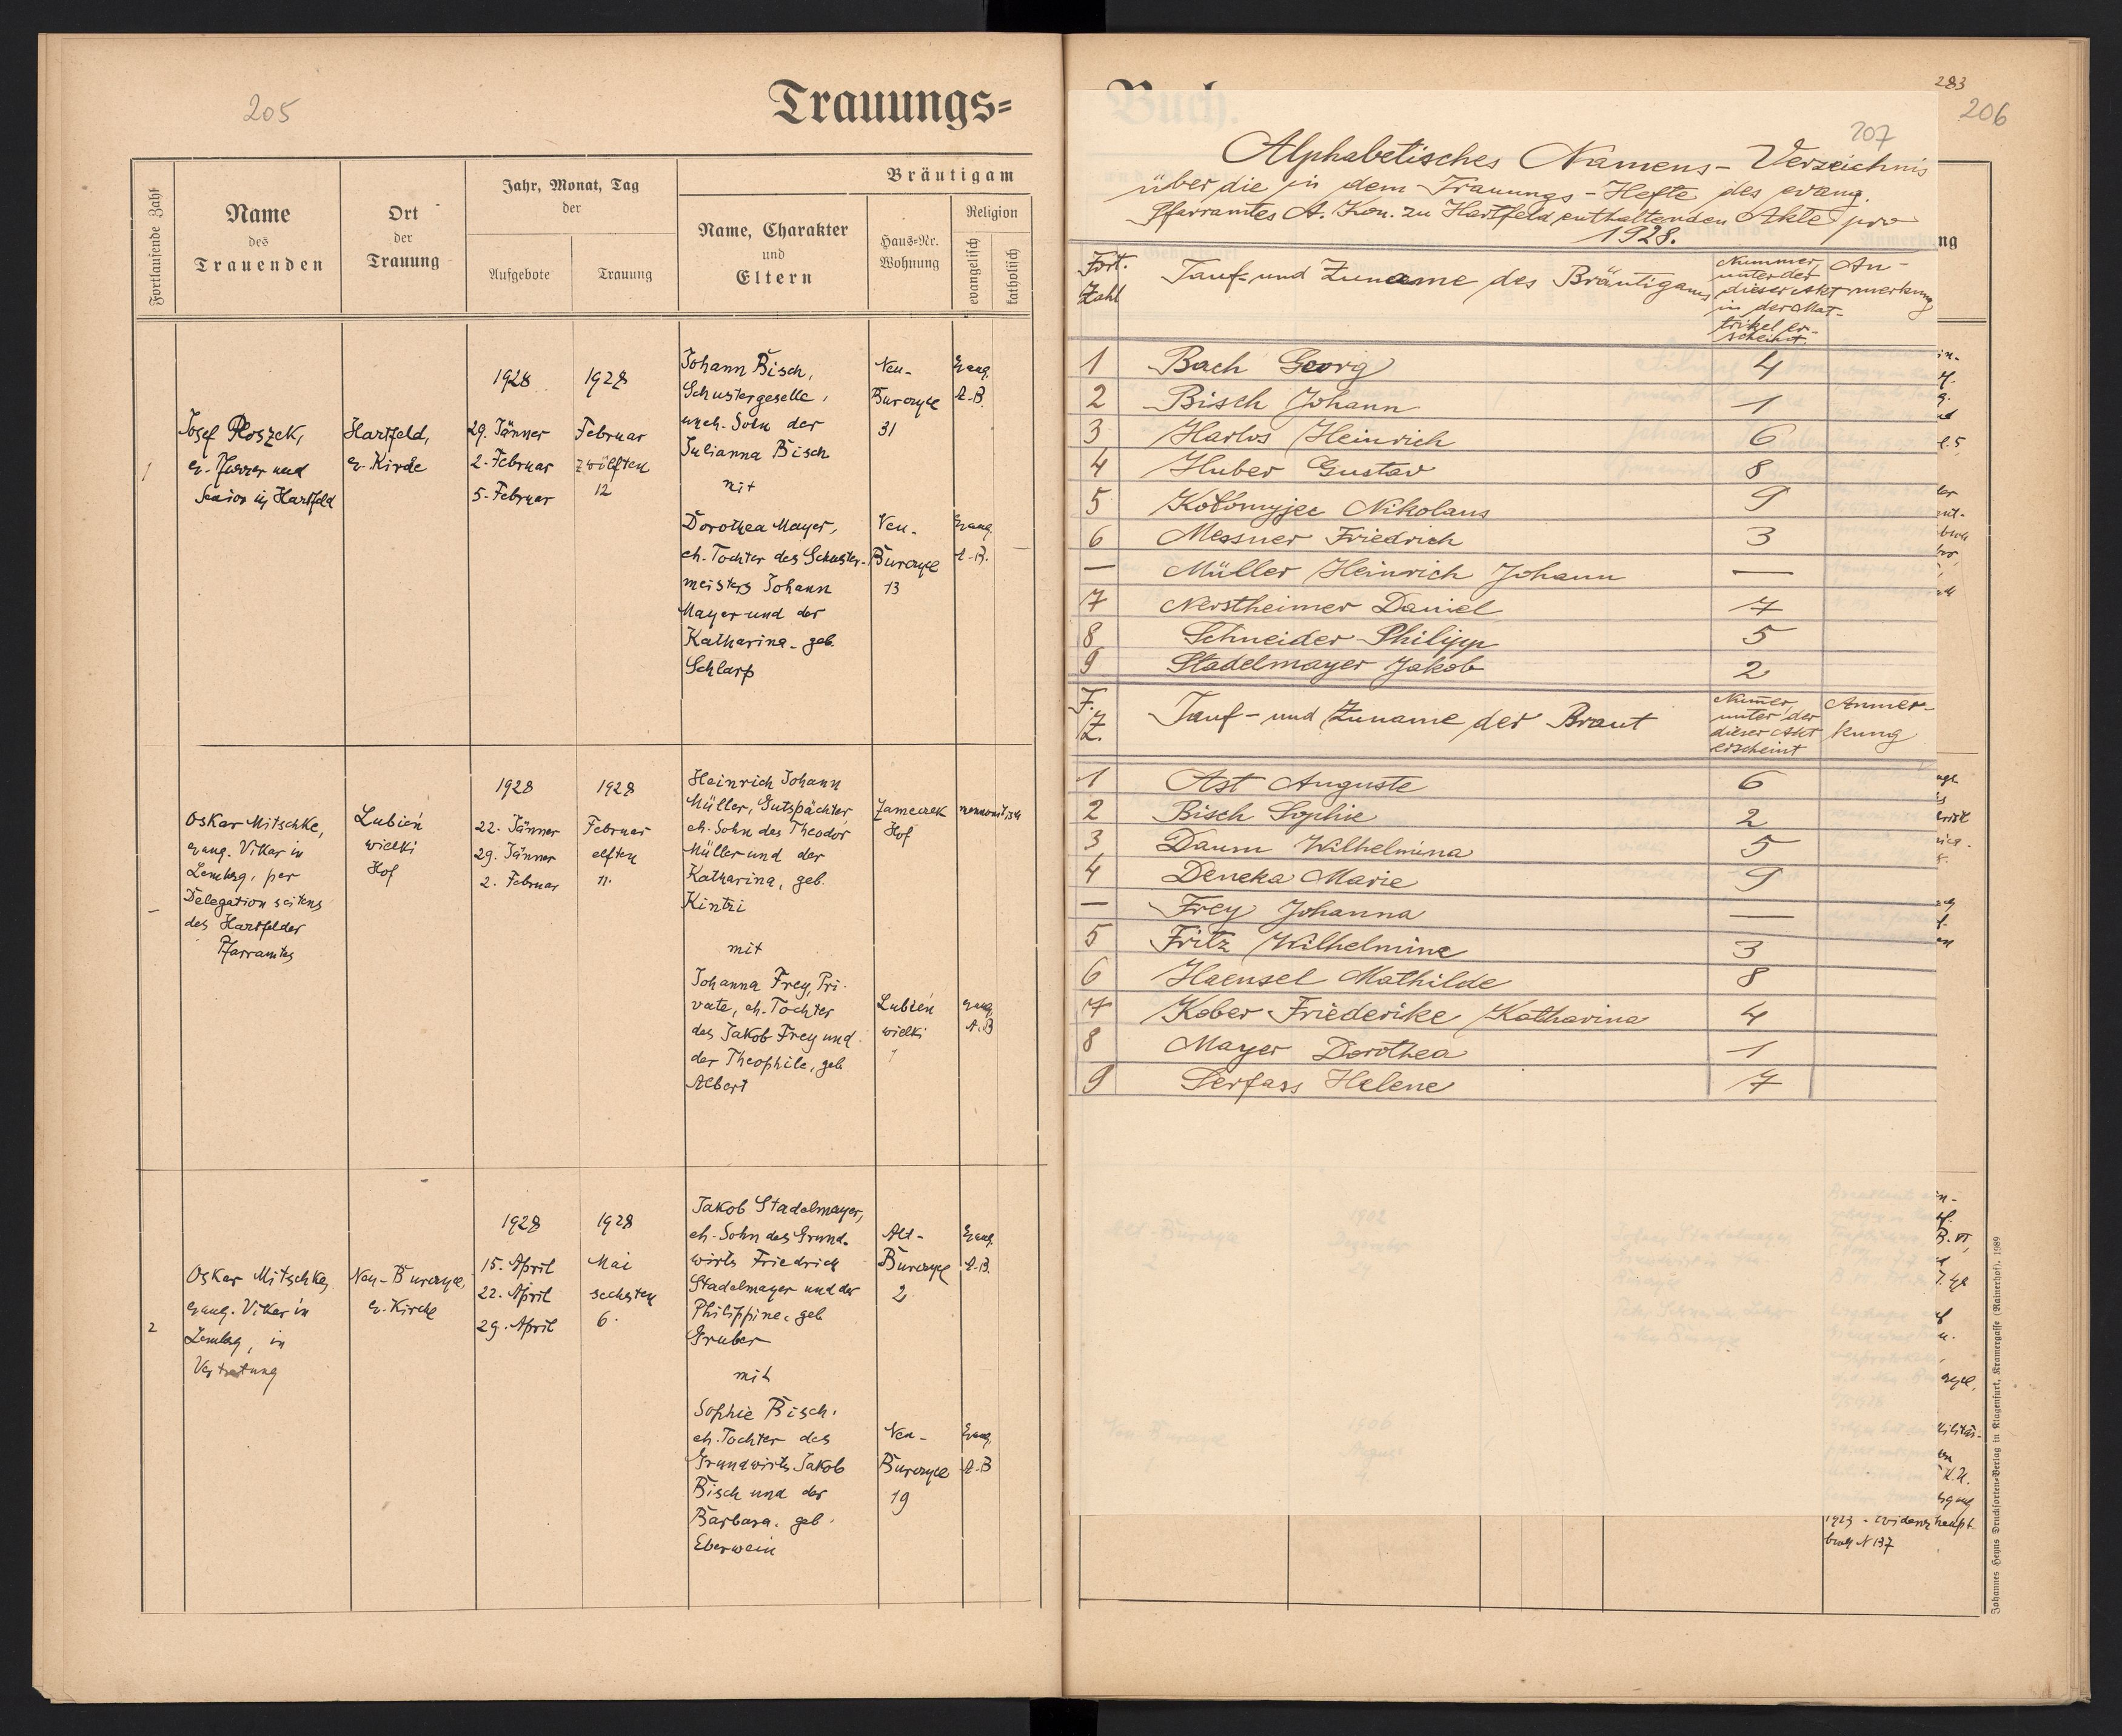 205
Trauungs=
Fortlaufende Zahl
Name
des
Trauenden
Ort
der
Trauung
Jahr, Monat, Tag
der
Aufgebote
Trauung
Bräutigam
Name, Charakter
und
Eltern
Haus=Nr.
Wohnung
Religion
evangelisch
katholisch
1
Josef Ploszek,
ev. Pfarrer und
Senior in Hartfeld
Hartfeld,
ev. Kirche
1928
29. Jänner
2. Februar
5. Februar
1928
Februar
zwölften
12
Johann Bisch,
Schustergeselle,
uneh. Sohn der
Julianna Bisch
mit
Dorothea Mayer,
eh. Tochter des Schuster-
meisters Johann
Mayer und der
Katharina geb.
Schlarp
Neu-
Burczyce
31
Evang.
A.B.
Neu-
Burczyce
13
Evang.
A.B.
–
Oskar Mitschke,
evang. Vikar in
Lemberg, per
Delegation seitens
des Hartfelder
Pfarramtes
Lubień
wielki
Hof
1928
22. Jänner
29. Jänner
2. Februar
1928
Februar
elften
11.
Heinrich Johann
Müller, Gutspächter
eh. Sohn des Theodor
Müller und der
Katharina, geb.
Kintzi
mit
Johanna Frey, Pri-
vate, eh. Tochter
des Jakob Frey und
der Theophile, geb
Albert
Zameczek
Hof
mennonitisch
Lubień
wielki
1
evang.
A.B
2
Oskar Mitschke,
evang. Vikar in
Lemberg, in
Vertretung
Neu-Burczyce,
ev. Kirche
1928
15. April
22. April
29. April
1928
Mai
sechsten
6.
Jakob Stadelmayer,
eh. Sohn des Grund-
wirts Friedrich
Stadelmayer und der
Philippine, geb
Gruber
mit
Sophie Bisch,
eh. Tochter des
Grundwirts Jakob
Bisch und der
Barbara. geb.
Eberwein
Alt-
Burczyce
2
Evang.
A.B.
Neu-
Burczyce
19
Evang.
A.B
283
206
207
Buch.
Alphabetisches Namens-Verzeichnis
über die in dem Trauungs-Hefte des evang.
Pfarramtes A. Kon. zu Hartfeld enthaltenden Akte pro
1928.
Fort.
Zahl
Tauf- und Zuname des Bräutigams
Nummer,
unter der
dieser Akt
in der Mat-
trikel er-
scheint
An-
merkung
1 Bach Georg 4
2 Bisch Johann 1
3 Harlos Heinrich 6
4 Huber Gustav 8
5 Kołomyjec Nikolaus 9
6 Messner Friedrich 3
— Müller Heinrich Johann —
7 Nerstheimer Daniel 7
8 Schneider Philipp 5
9 Stadelmayer Jakob 2
F.
Z.
Tauf- und Zuname der Braut
Numer,
unter der
dieser Akt
erscheint
Anmer-
kung
1 Ast Auguste 6
2 Bisch Sophie 2
3 Daum Wilhelmina 5
4 Deneka Marie 9
— Frey Johanna —
5 Fritz Wilhelmine 3
6 Haensel Mathilde 8
7 Kober Friederike Katharina 4
8 Mayer Dorothea 1
9 Serfass Helene 7
1923 - Evidenzhaupt-
buch N 137
Johannes Heyns Drucksorten=Verlag in Klagenfurt, Kramergasse (Rainerhof). 1989